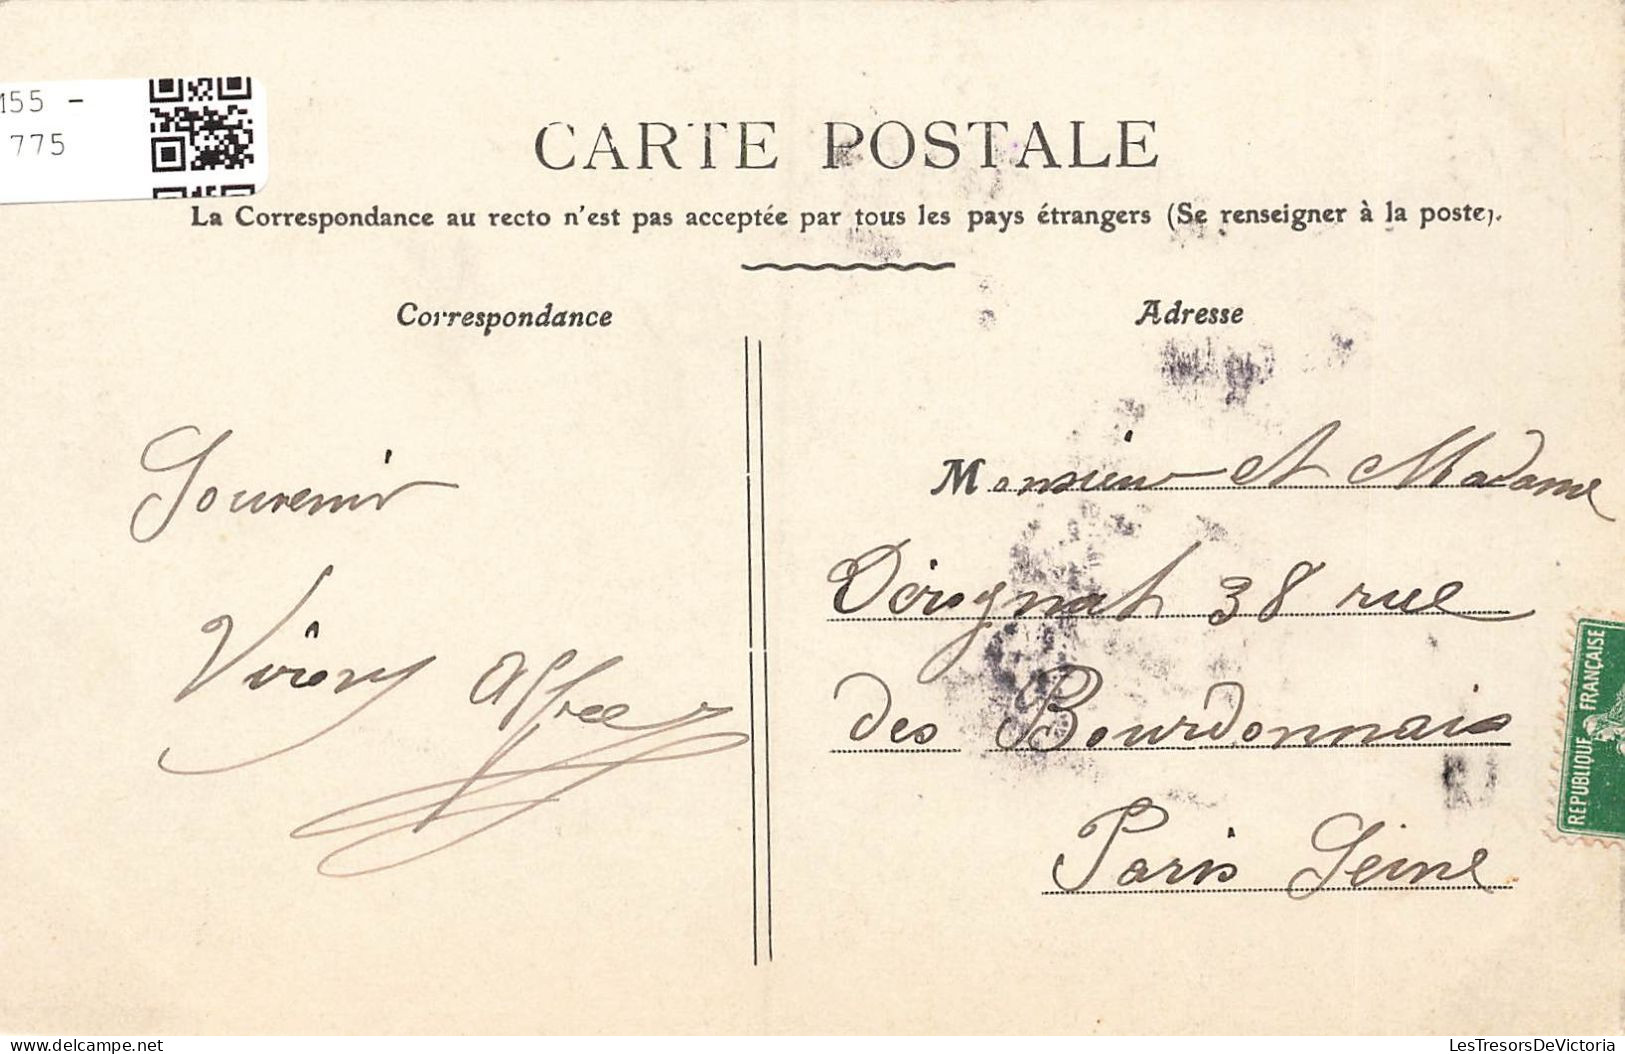 155 -
775
CARTE POSTALE
La Correspondance au recto n'est pas acceptée par tous les pays étrangers (Se renseigner à la poste).
Correspondance
Adresse
Souvenir
Alfred
Monsieur et Madame
38 rue
des Bourdonnais
Paris Seine
REPUBLIQUE FRANÇAISE
delcampe.net
LesTresorsDeVictoria